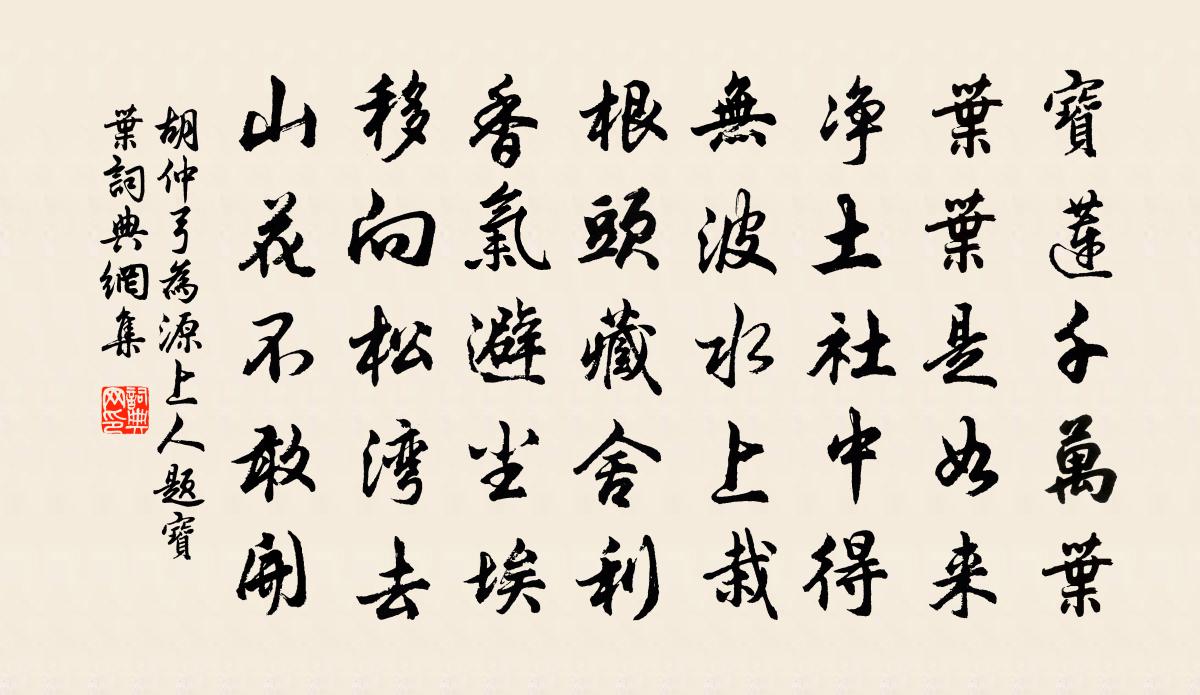 寶蓮千萬葉
葉葉是如来
净土社中得
無波水上栽
根頭藏舍利
香氣避尘埃
移向松湾去
山花不敢開
胡仲弓為源上人題寶
葉詞典網集
詞典
网印